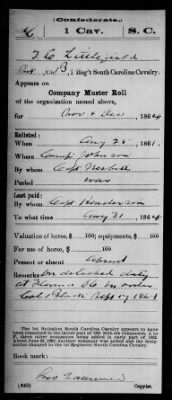 (Confederate.)
1 Cav. S. C.
T C Littlefield
Pvt, Co. B, 1 Reg't South Carolina Cavalry.
Appears on
Company Muster Roll
of the organization named above,
for Nov & Dec, 1864.
Enlisted:
When Aug 25, 1861.
Where Camp Johnson
By whom Capt Nesbitt
Period war
Last paid:
By whom Capt Henderson
To what time Aug 31, 1864.
Valuation of horse, $ 100; equipments, $ 100
For use of horse, $ 100
Present or absent Absent
Remarks: On detached duty
at Florence S.C. by order
Col Black Sept 17 1864
The 1st Battalion South Carolina Cavalry appears to have
been organized in the fall of 1861 with six companies,
three other companies being added in early part of 1862.
About June 25, 1862, another company was added and the
command became the 1st Regiment South Carolina Cavalry.
Book mark:
(642) Copyist.